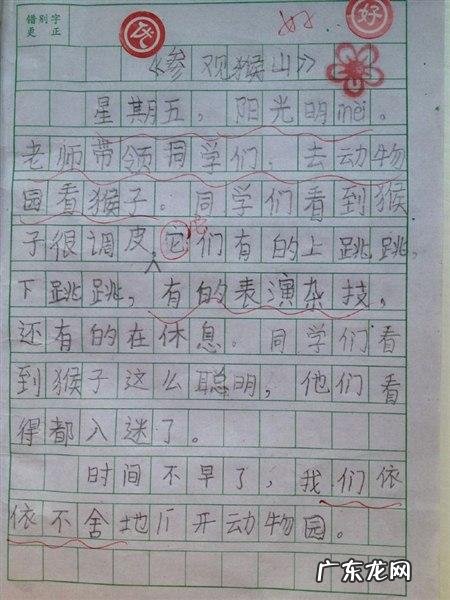 错别字
更正
好
好
《参观猴山》
星期五，阳光明mèi。
老师带领同学们，去动物
园看猴子。同学们看到猴
子很调皮，它们有的上跳跳，
它
下跳跳，有的表演杂技，
还有的在休息。同学们看
到猴子这么聪明，他们看
得都入迷了。
时间不早了，我们依
依不舍地厂开动物园。
广东龙网